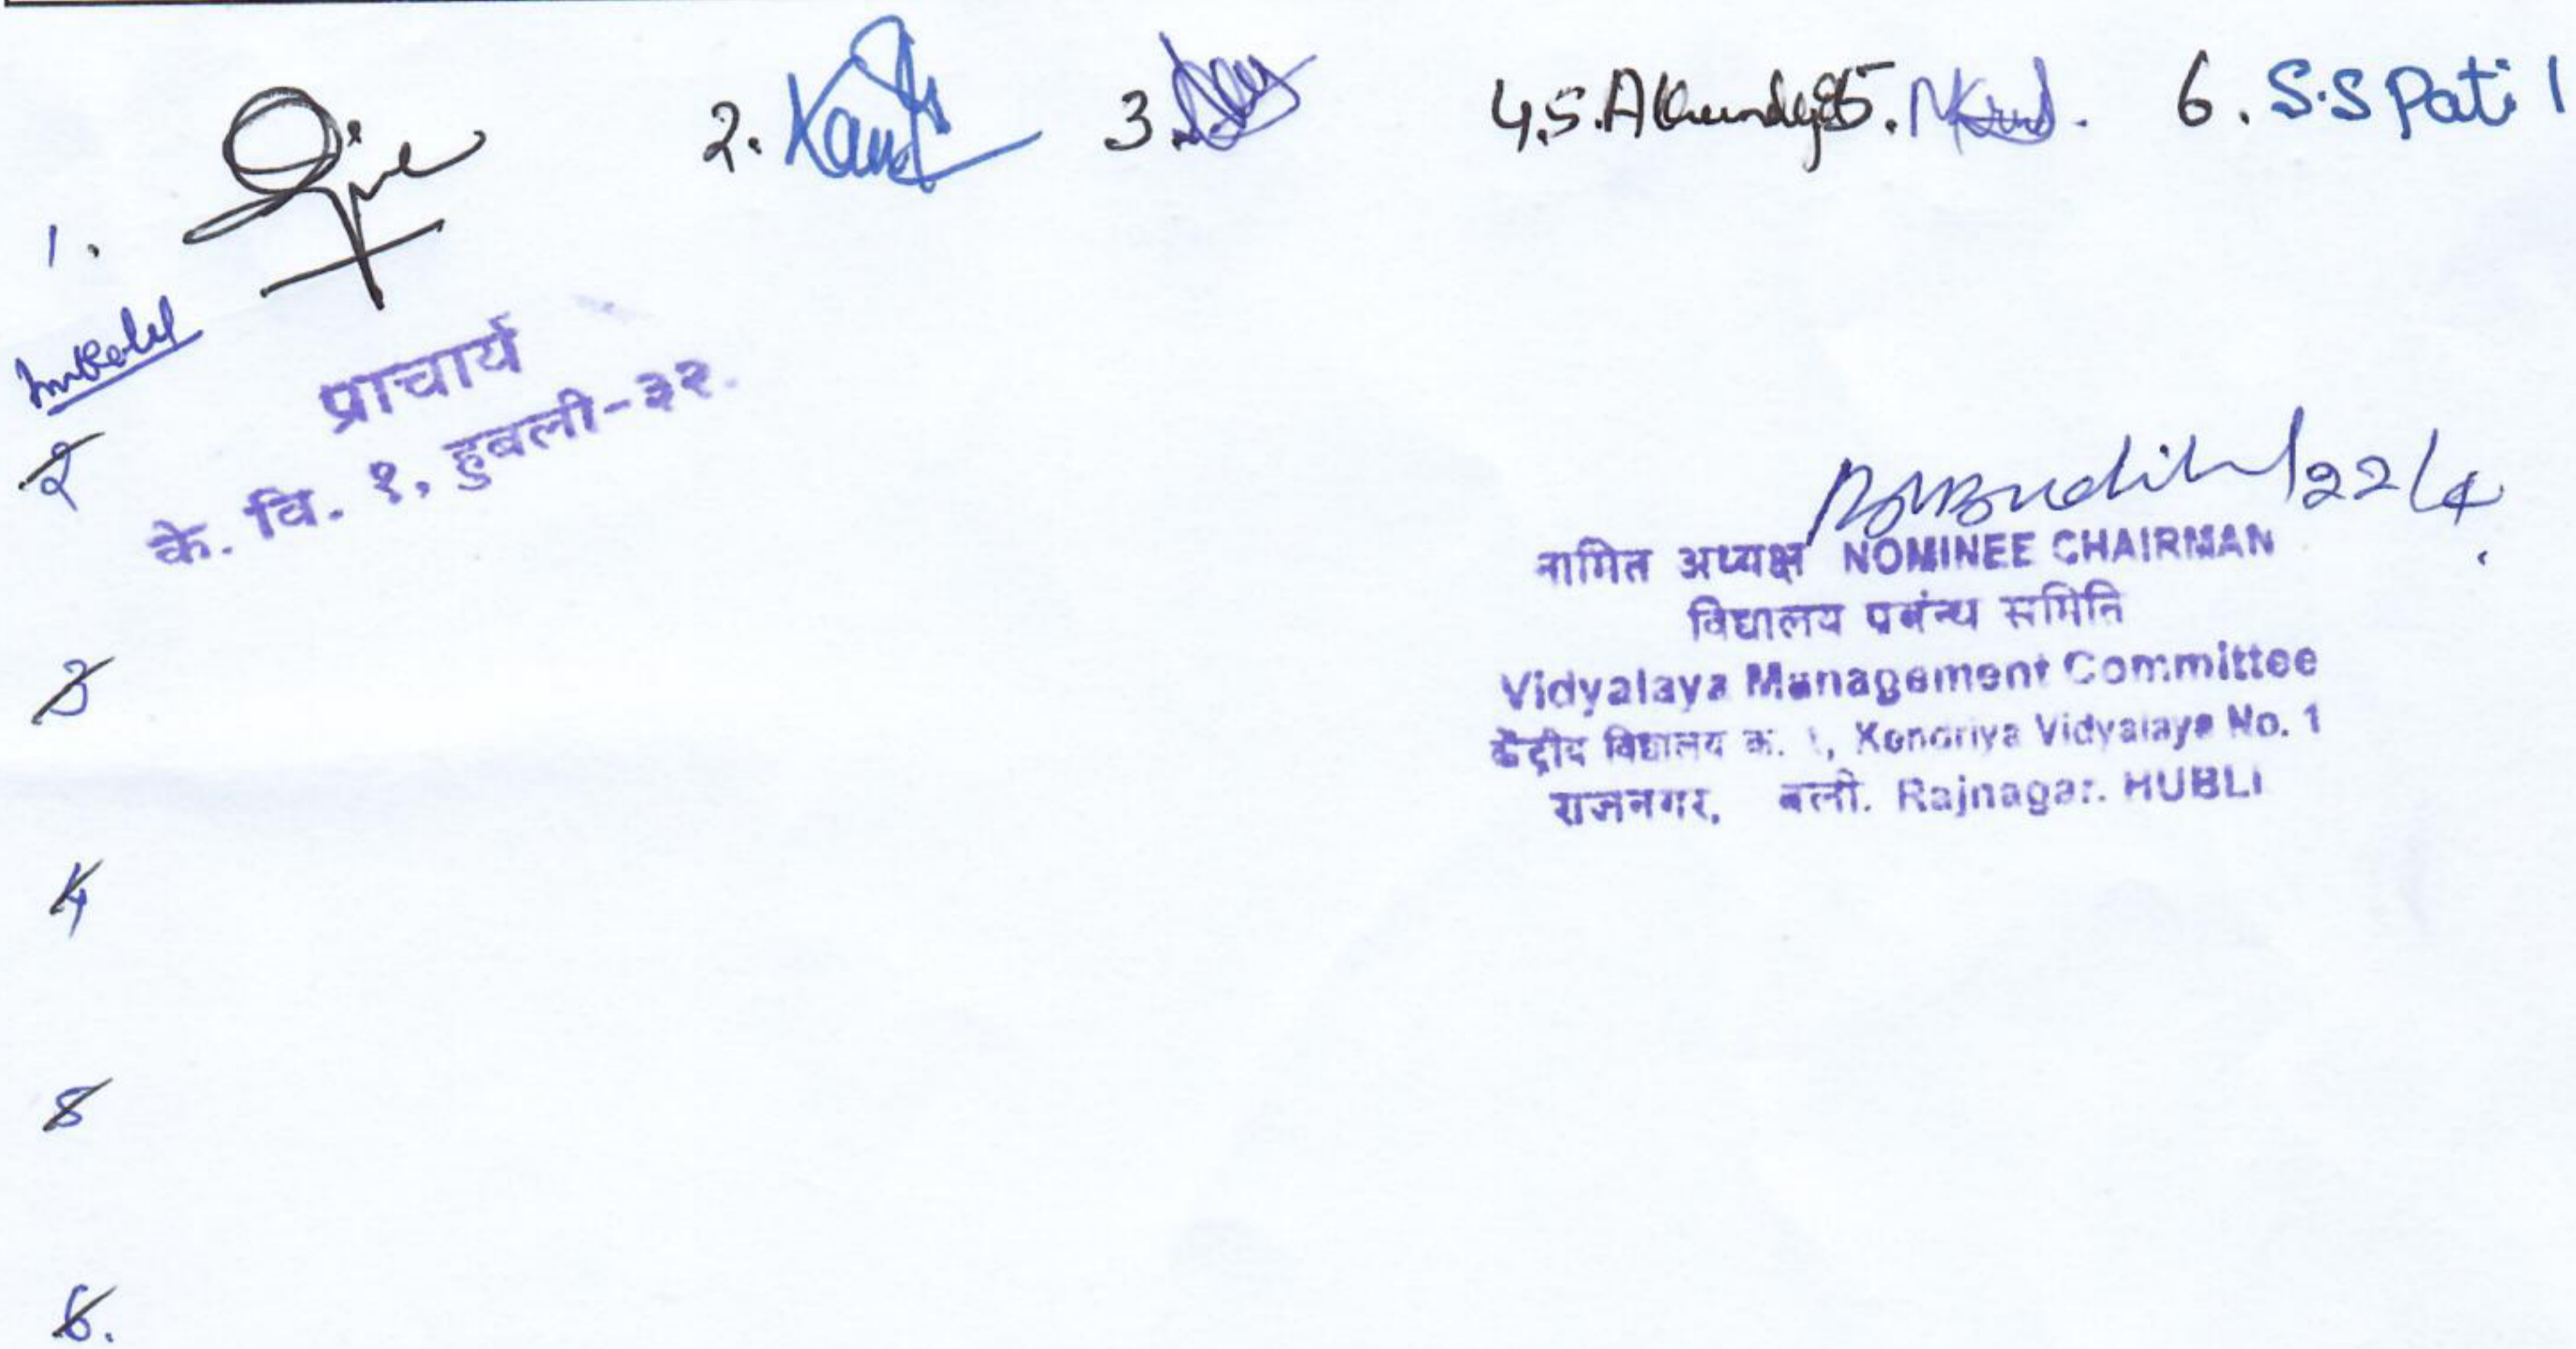 1. 2. 3. 4. S. 5. 6. S.S Patil
प्राचार्य
के. वि. १, हुबली-३२.
2
3
4
5
6.
22/4
नामित अध्यक्ष NOMINEE CHAIRMAN
विद्यालय प्रबंन्ध समिति
Vidyalaya Management Committee
केंद्रीय विद्यालय क्र. 1, Kendriya Vidyalaya No. 1
राजनगर, बली. Rajnagar. HUBLI